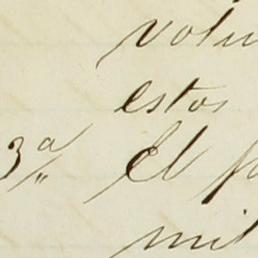 volu
estos
3ª El f
mil